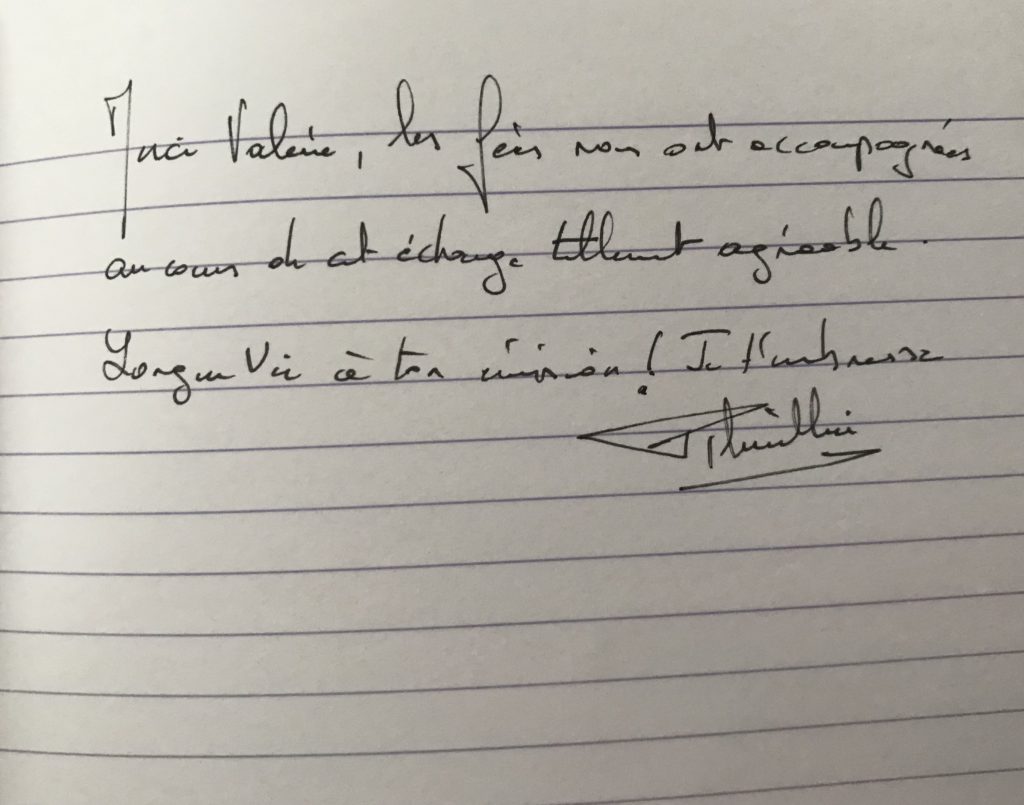 Merci Valérie, les fées nous ont accompagnées
au cours de cet échange tellement agréable.
Longue Vie à ton mission ! Je t'embrasse